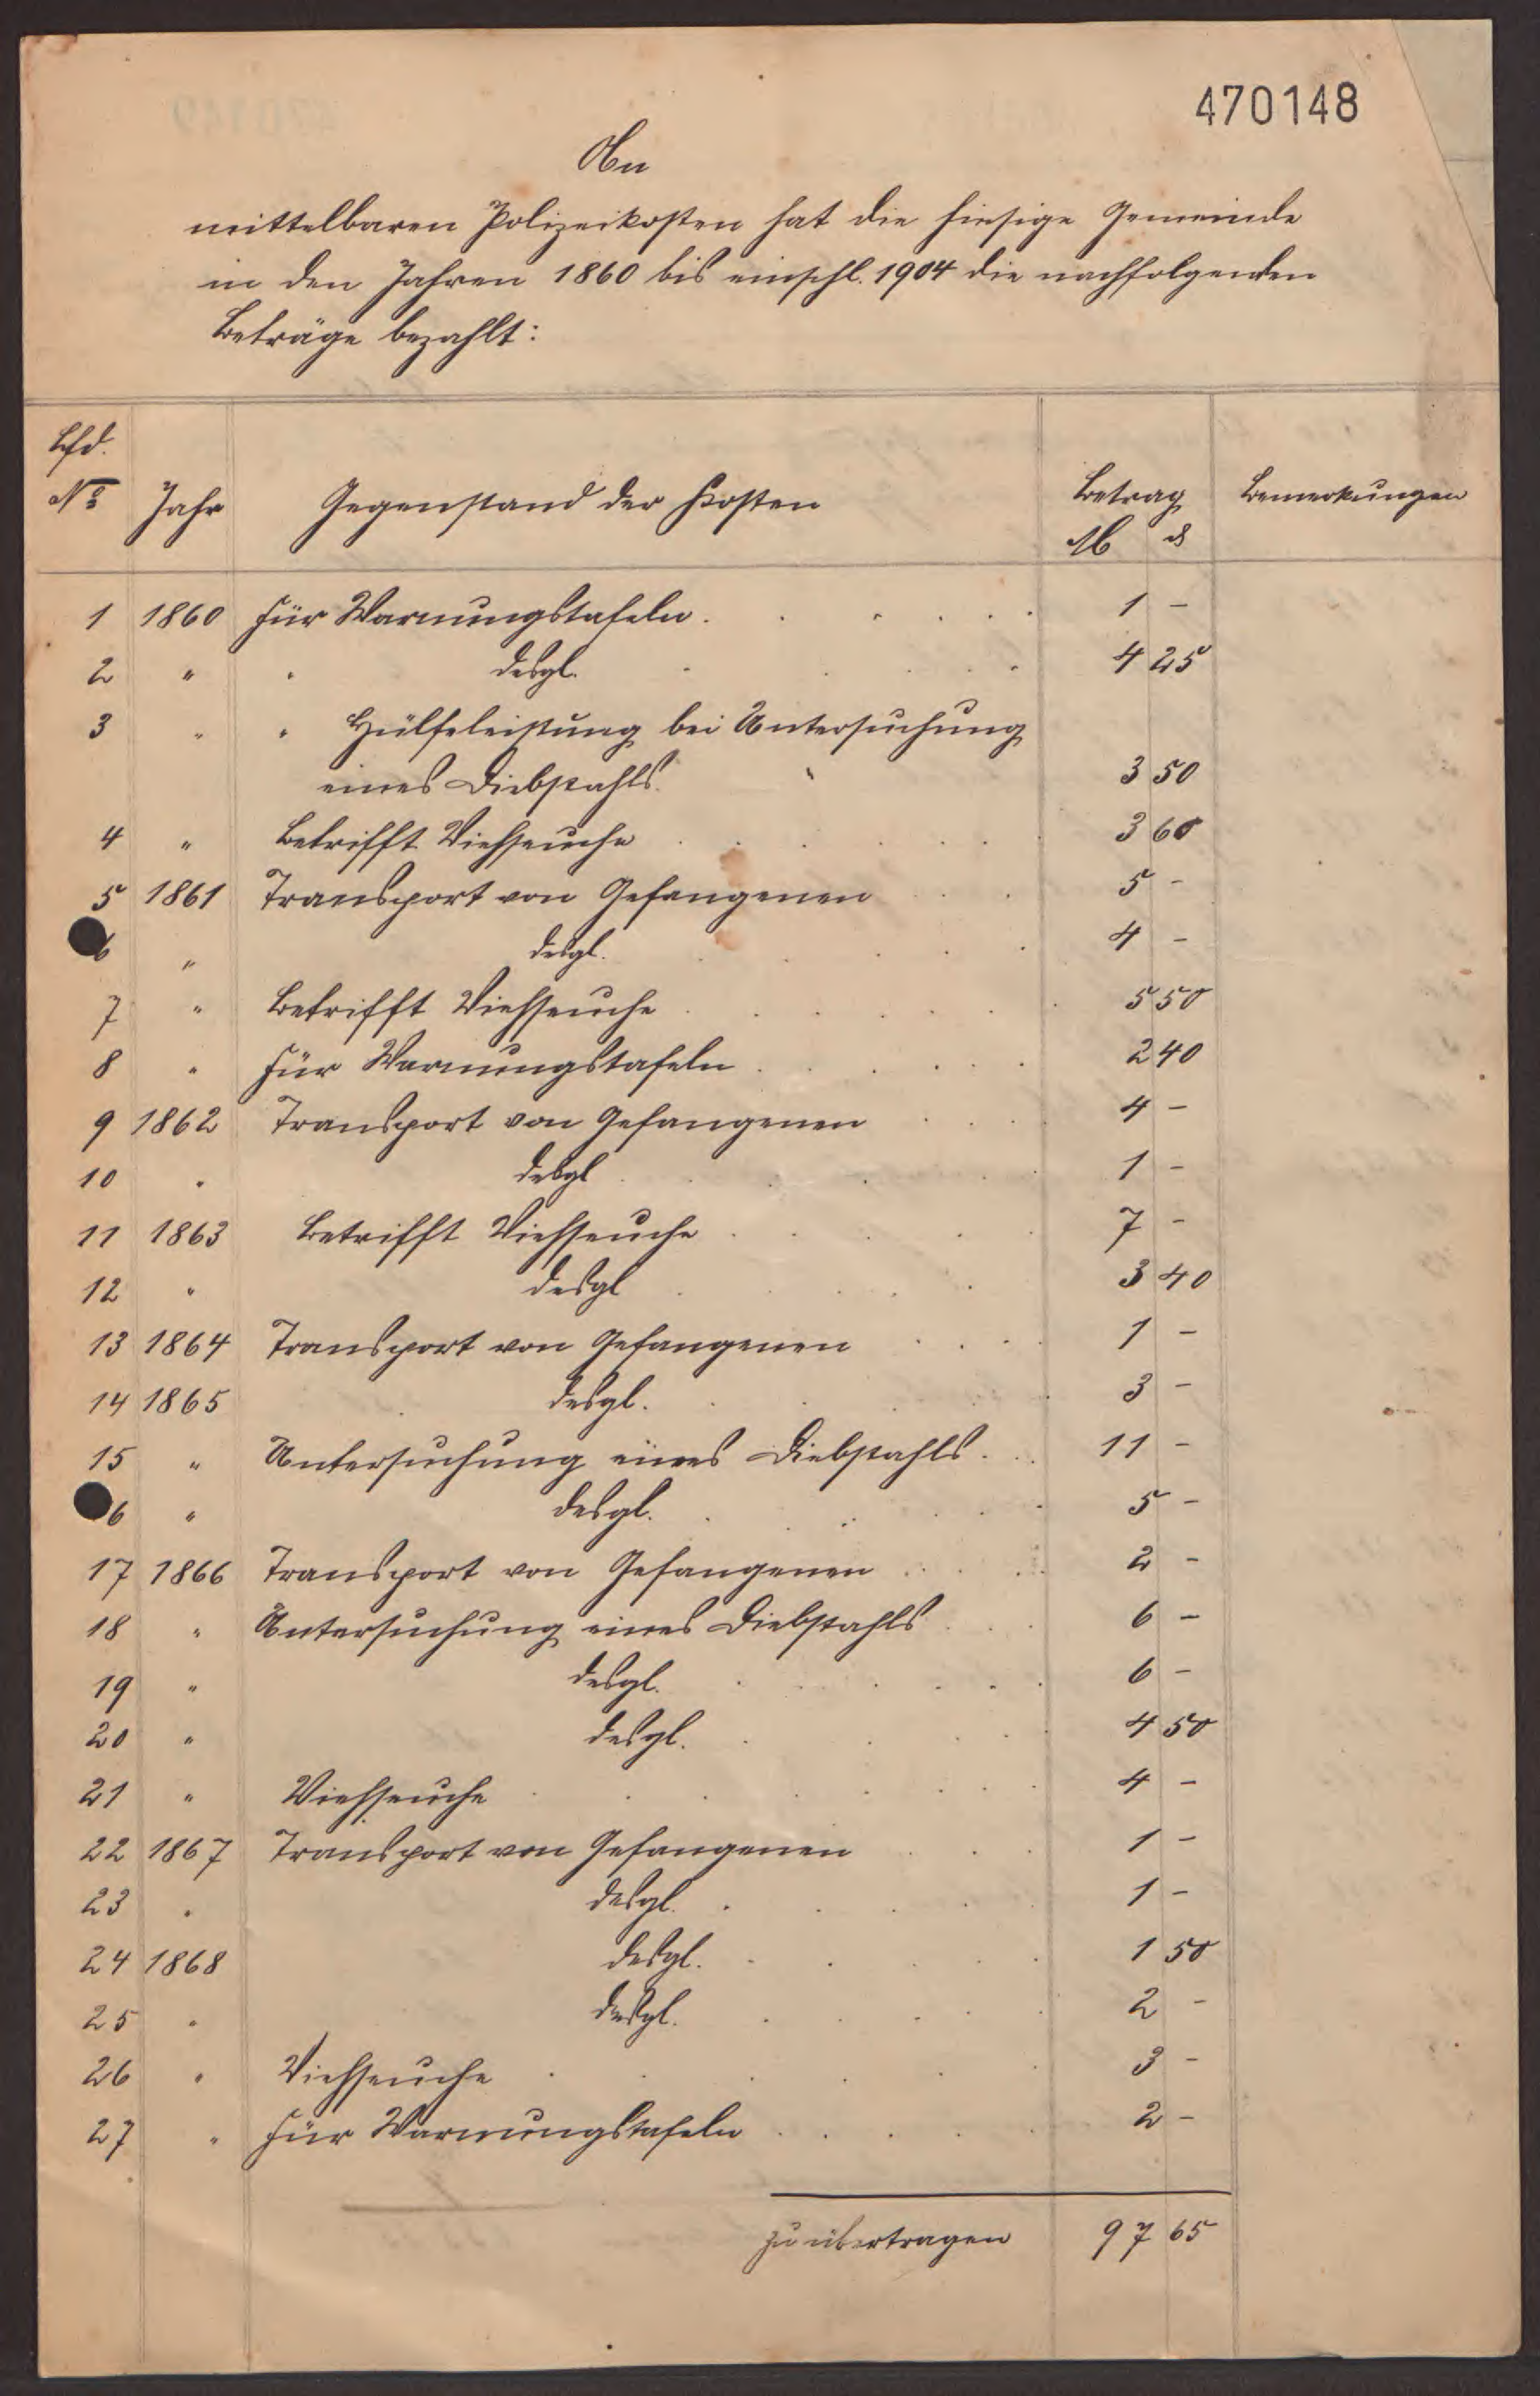 470148
An
mittelbaren Polizeikosten hat die hiesige Gemeinde
in den Jahren 1860 bis einschl. 1904 die nachfolgenden
Beträge bezahlt:
Lfd.
No Jahr Gegenstand der Kosten Betrag Bemerkungen
M ₰
1 1860 Für Warnungstafeln . . . . . 1 -
2 " " desgl. . . . . 4 25
3 " " Hülfeleistung bei Untersuchung
eines Diebstahls. 3 50
4 " Betrifft Viehseuche . . . . . 3 60
5 1861 Transport von Gefangenen . . . 5 -
6 " desgl. . . . . 4 -
7 " Betrifft Viehseuche . . . . . 5 50
8 " Für Warnungstafeln . . . . . 2 40
9 1862 Transport von Gefangenen . . . 4 -
10 " desgl . . . . 1 -
11 1863 Betrifft Viehseuche . . . . . 7 -
12 " desgl . . . . 3 40
13 1864 Transport von Gefangenen . . . 1 -
14 1865 desgl. . . . . 3 -
15 " Untersuchung eines Diebstahls . . . 11 -
6 " desgl. . . . . 5 -
17 1866 Transport von Gefangenen . . . 2 -
18 " Untersuchung eines Diebstahls . . . 6 -
19 " desgl. . . . . 6 -
20 " desgl. . . . . 4 50
21 " Viehseuche . . . . . 4 -
22 1867 Transport von Gefangenen . . . 1 -
23 " desgl. . . . . 1 -
24 1868 desgl. . . . . 1 50
25 " desgl. . . . . 2 -
26 " Viehseuche . . . . . 3 -
27 " Für Warnungstafeln . . . . . 2 -
zu übertragen 97 65